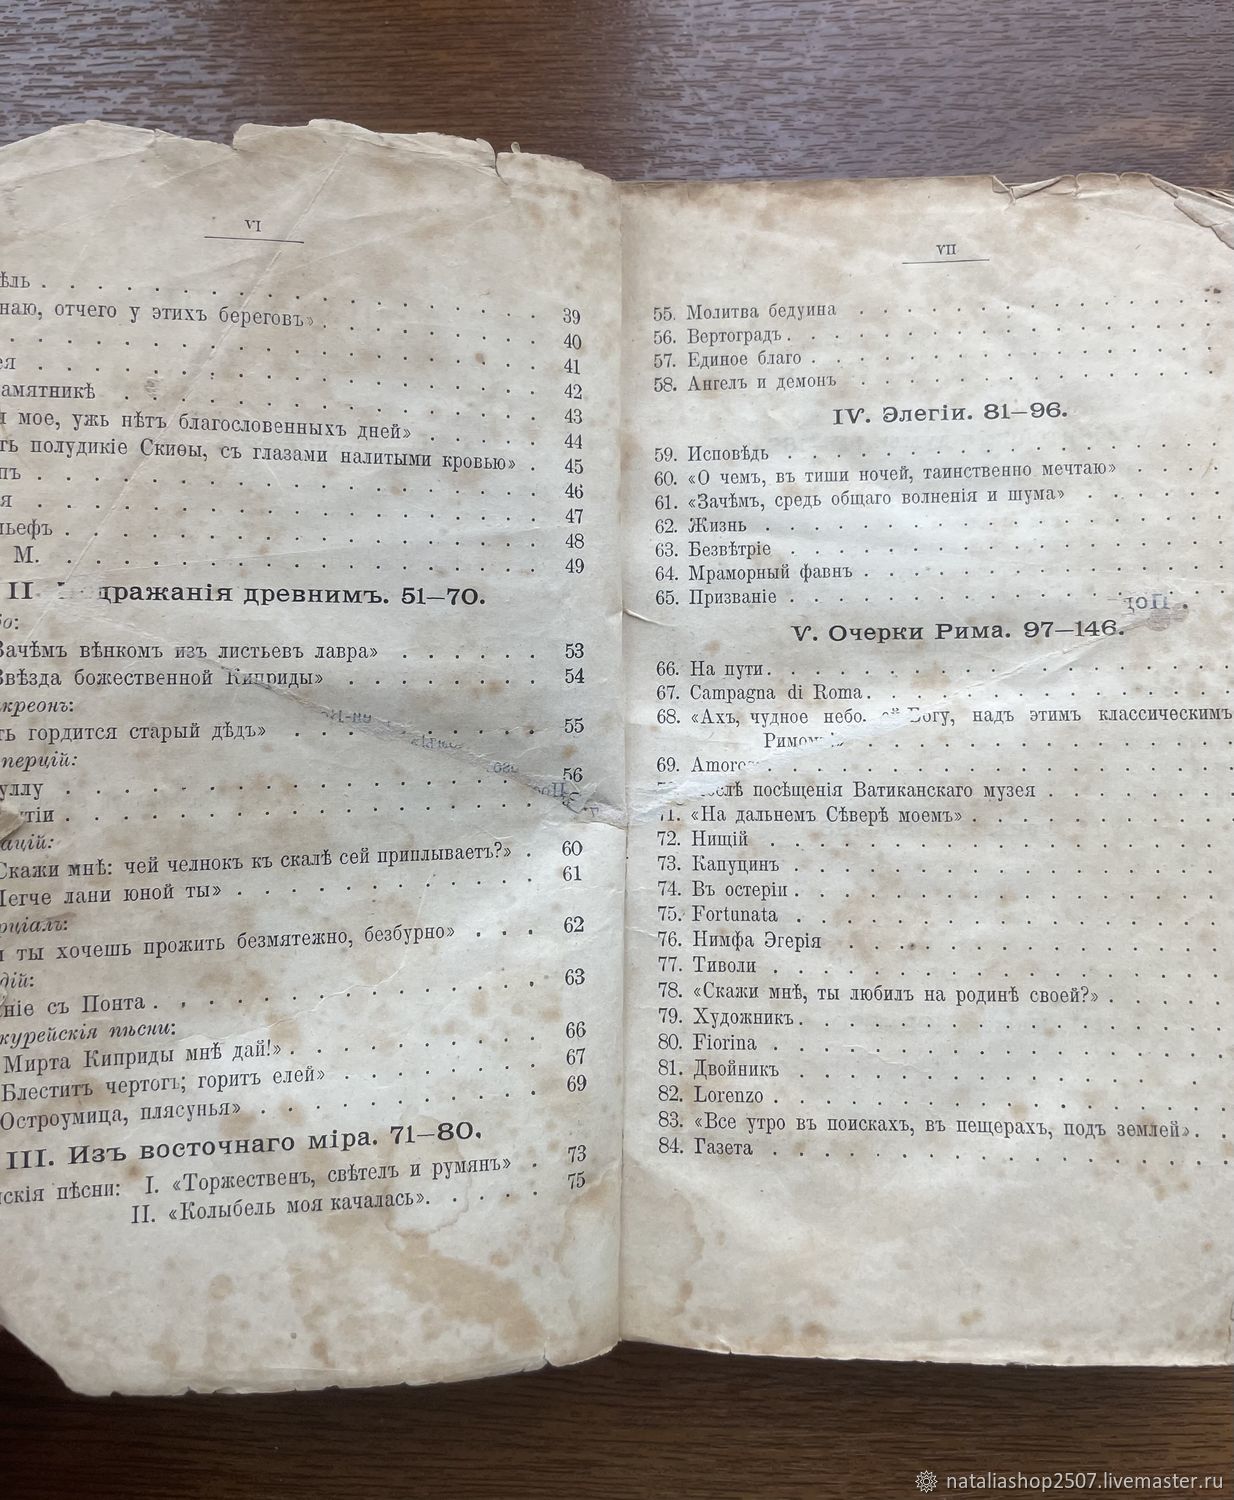 VI
ѣль
наю, отчего у этихъ береговъ» 39
40
ея 41
амятникѣ 42
мое, ужь нѣтъ благословенныхъ дней» 43
ть полудикіе Скиѳы, съ глазами налитыми кровью» 44
пъ 45
я 46
льефъ 47
М. 48
49
II. дражанія древнимъ. 51—70.
Зачѣмъ вѣнкомъ изъ листьевъ лавра» 53
Звѣзда божественной Киприды» 54
креонъ:
ть гордится старый дѣдъ» 55
перцій:
уллу 56
тіи
ацій:
Скажи мнѣ: чей челнокъ къ скалѣ сей приплываетъ?» 60
Легче лани юной ты» 61
рціалъ:
ты хочешь прожить безмятежно, безбурно» 62
дій:
ніе съ Понта 63
курейскія пѣсни:
Мирта Киприды мнѣ дай!» 66
Блеститъ чертогъ; горитъ елей» 67
Остроумица, плясунья» 69
III. Изъ восточнаго міра. 71—80.
скія пѣсни: I. «Торжественъ, свѣтелъ и румянъ» 73
II. «Колыбель моя качалась». 75
VII
55. Молитва бедуина
56. Вертоградъ
57. Единое благо
58. Ангелъ и демонъ
IV. Элегіи. 81—96.
59. Исповѣдь
60. «О чемъ, въ тиши ночей, таинственно мечтаю»
61. «Зачѣмъ, средь общаго волненія и шума»
62. Жизнь
63. Безвѣтріе
64. Мраморный фавнъ
65. Призваніе
V. Очерки Рима. 97—146.
66. На пути
67. Campagna di Roma
68. «Ахъ, чудное небо, ей Богу, надъ этимъ классическимъ
Римомъ!»
69. Amoroso
послѣ посѣщенія Ватиканскаго музея
71. «На дальнемъ Сѣверѣ моемъ»
72. Нищій
73. Капуцинъ
74. Въ остеріи
75. Fortunata
76. Нимфа Эгерія
77. Тиволи
78. «Скажи мнѣ, ты любилъ на родинѣ своей?»
79. Художникъ
80. Fiorina
81. Двойникъ
82. Lorenzo
83. «Все утро въ поискахъ, въ пещерахъ, подъ землей»
84. Газета
nataliashop2507.livemaster.ru